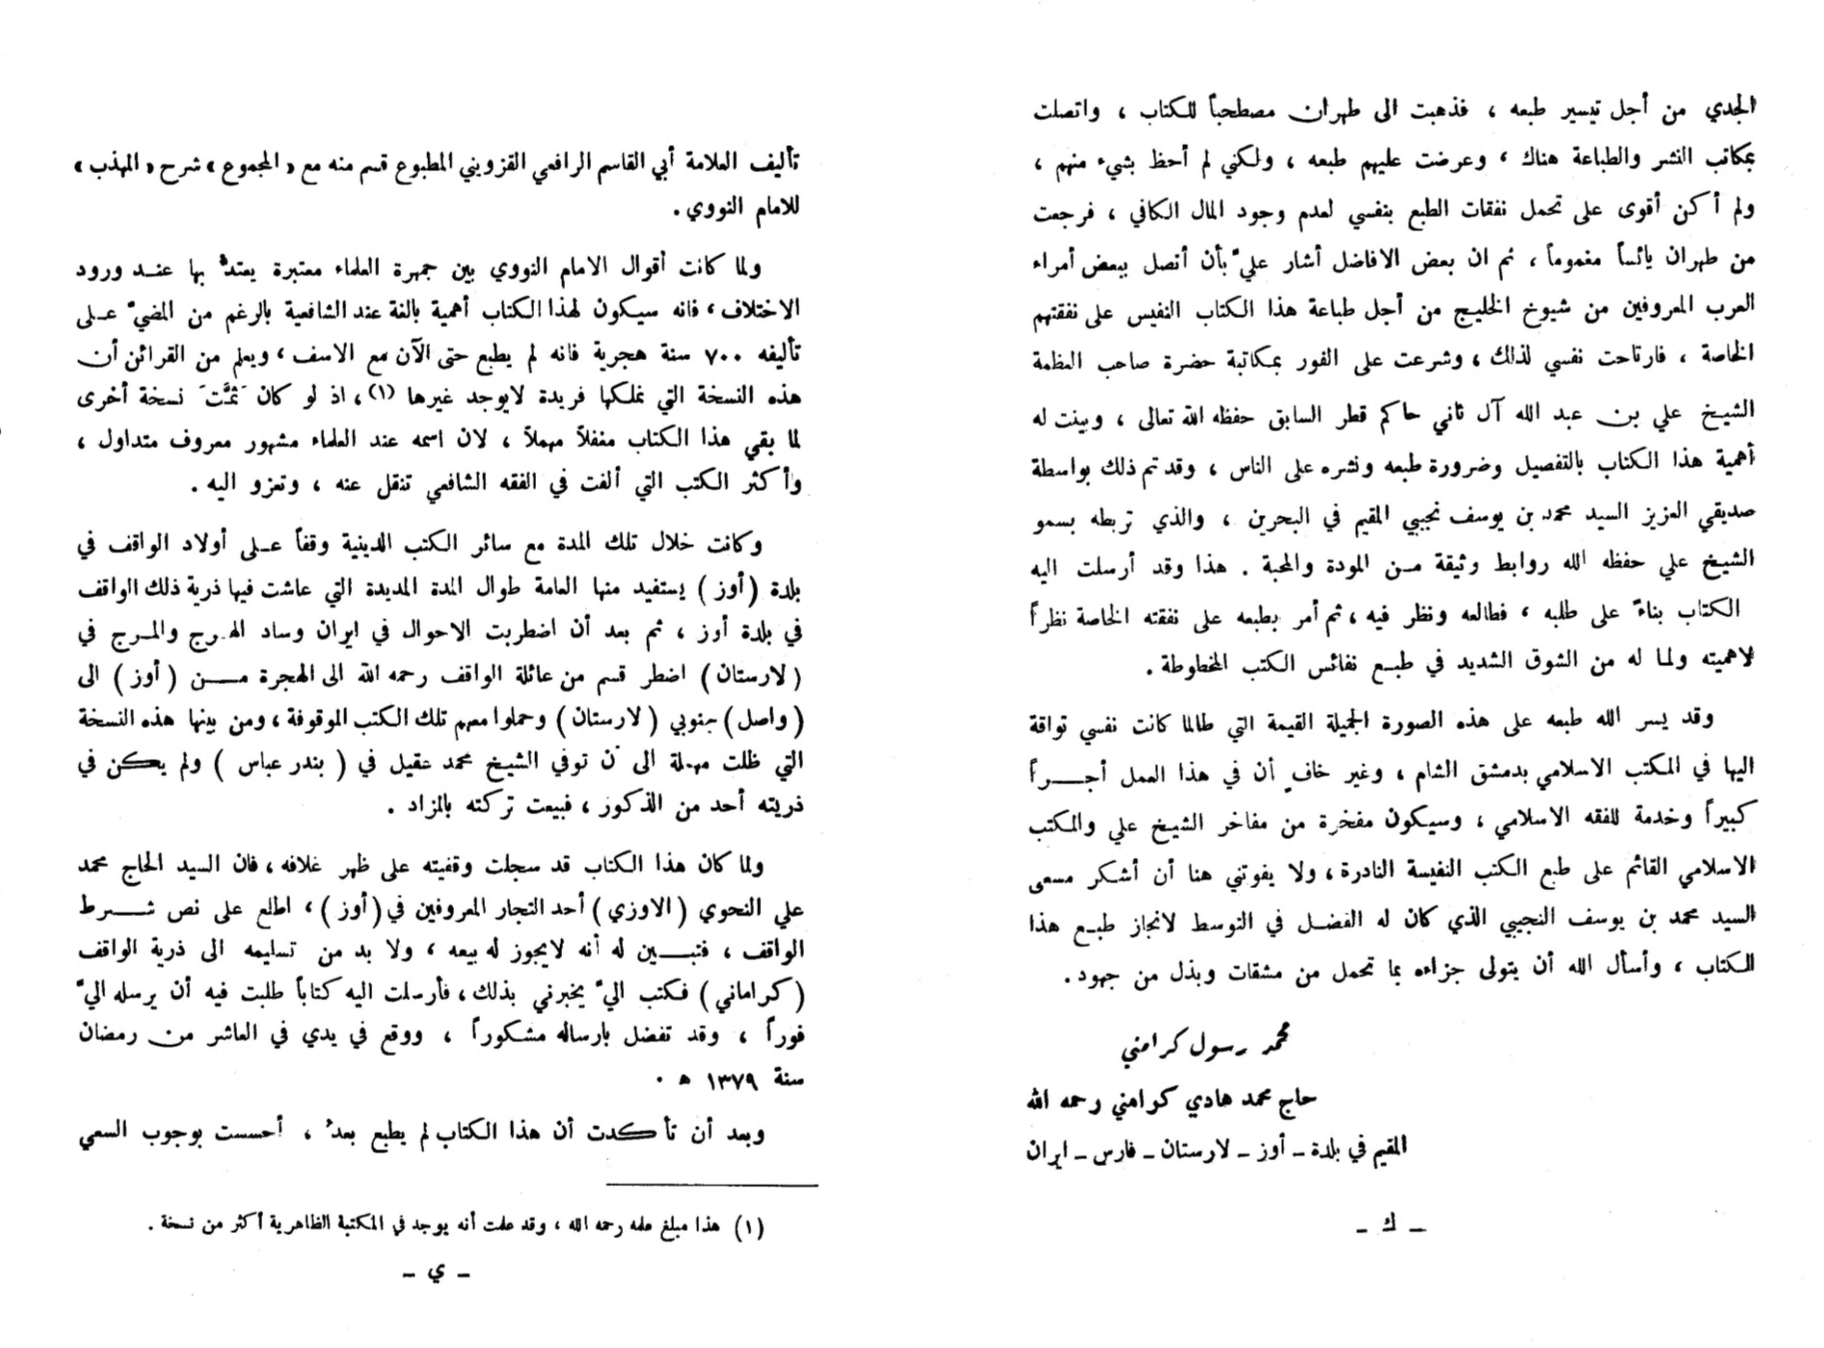 تأليف العلامة أبي القاسم الرافعي القزويني المطبوع قسم منه مع « المجموع » شرح « المهذب »
للامام النووي .
ولما كانت أقوال الامام النووي بين جمهرة العلماء معتبرة يعتدُّ بها عنـد ورود
الاختلاف ، فانه سيكون لهذا الكتاب أهمية بالغة عند الشافعية بالرغم من المضيّ عـلى
تأليفه ٧٠٠ سنة هجرية فانه لم يطبع حتى الآن مع الاسف ، ويعلم من القرائن أن
هذه النسخة التي نملكها فريدة لايوجد غيرها (١) ، اذ لو كان ثَمَّتَ نسخة أخرى
لما بقي هذا الكتاب مغفلاً مهملاً ، لان اسمه عند العلماء مشهور معروف متداول ،
وأكثر الكتب التي ألفت في الفقه الشافعي تنقل عنه ، وتعزو اليه .
وكانت خلال تلك المدة مع سائر الكتب الدينية وقفاً عـلى أولاد الواقف في
بلدة ( أوز ) يستفيد منها العامة طوال المدة المديدة التي عاشت فيها ذرية ذلك الواقف
في بلدة أوز ، ثم بعد أن اضطربت الاحوال في ايران وساد الهرج والمـرج في
( لارستان ) اضطر قسم من عائلة الواقف رحمه الله الى الهجرة مـــن ( أوز ) الى
( واصل ) جنوبي ( لارستان ) وحملوا معهم تلك الكتب الموقوفة ، ومن بينها هذه النسخة
التي ظلت مهملة الى ن توفي الشيخ محمد عقيل في ( بندر عباس ) ولم يكن في
ذريته أحد من الذكور ، فبيعت تركته بالمزاد .
ولما كان هذا الكتاب قد سجلت وقفيته على ظهر غلافه ، فان السيد الحاج محمد
علي النحوي ( الاوزي ) أحد التجار المعروفين في ( أوز ) ، اطلع على نص شـــرط
الواقف ، فتبـــين له أنه لايجوز له بيعه ، ولا بد من تسليمه الى ذرية الواقف
( كراماني ) فكتب اليّ يخبرني بذلك ، فأرسلت اليه كتاباً طلبت فيه أن يرسله اليّ
فوراً ، وقد تفضل بارساله مشكوراً ، ووقع في يدي في العاشر من رمضان
سنة ١٣٧٩ ه .
وبعد أن تأكدت أن هذا الكتاب لم يطبع بعدُ ، أحسست بوجوب السعي
(١) هذا مبلغ علمه رحمه الله ، وقد علمت أنه يوجد في المكتبة الظاهرية أكثر من نسخة .
ـ ي ـ
الجدي من أجل تيسير طبعه ، فذهبت الى طهران مصطحباً للكتاب ، واتصلت
بمكاتب النشر والطباعة هناك ، وعرضت عليهم طبعه ، ولكني لم أحظ بشيء منهم ،
ولم أكن أقوى على تحمل نفقات الطبع بنفسي لعدم وجود المال الكافي ، فرجعت
من طهران يائساً مغموماً ، ثم ان بعض الافاضل أشار عليّ بأن أتصل ببعض أمراء
العرب المعروفين من شيوخ الخليج من أجل طباعة هذا الكتاب النفيس على نفقتهم
الخاصة ، فارتاحت نفسي لذلك ، وشرعت على الفور بمكاتبة حضرة صاحب العظمة
الشيخ علي بن عبد الله آل ثاني حاكم قطر السابق حفظه الله تعالى ، وبينت له
أهمية هذا الكتاب بالتفصيل وضرورة طبعه ونشره على الناس ، وقد تم ذلك بواسطة
صديقي العزيز السيد محمد بن يوسف نجيبي المقيم في البحرين ، والذي تربطه بسمو
الشيخ علي حفظه الله روابط وثيقة مـن المودة والمحبة . هذا وقد أرسلت اليه
الكتاب بناءً على طلبه ، فطالعه ونظر فيه ، ثم أمر بطبعه على نفقته الخاصة نظراً
لاهميته ولما له من الشوق الشديد في طبـع نفائس الكتب المخطوطة .
وقد يسر الله طبعه على هذه الصورة الجميلة القيمة التي طالما كانت نفسي تواقة
اليها في المكتب الاسلامي بدمشق الشام ، وغير خافٍ أن في هذا العمل أجـــراً
كبيراً وخدمة للفقه الاسلامي ، وسيكون مفخرة من مفاخر الشيخ علي والمكتب
الاسلامي القائم على طبع الكتب النفيسة النادرة ، ولا يفوتني هنا أن أشكر مسعى
السيد محمد بن يوسف النجيبي الذي كان له الفضـل في التوسط لانجاز طبـع هذا
الكتاب ، وأسأل الله أن يتولى جزاءه بما تحمل من مشقات وبذل من جهود .
محمد رسول كرامني
حاج محمد هادي كرامني رحمه الله
المقيم في بلدة ـ أوز ـ لارستان ـ فارس ـ ايران
ـ ك ـ